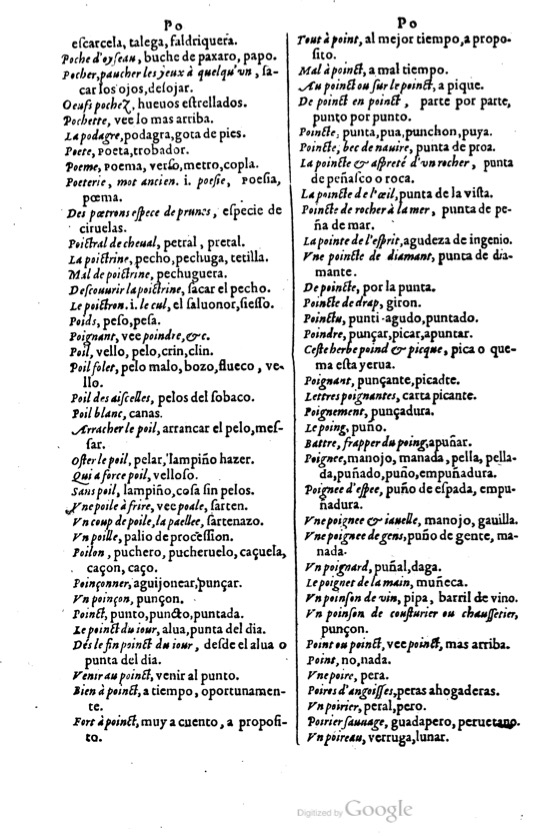 Po
eſcarcela, talega, faldriquera.
Poche d'oyſeau, buche de paxaro, papo.
Pocher, paucher les yeux à quelqu'vn, ſa-
car los ojos, deſojar.
Oeufs pochez, hueuos eſtrellados.
Pochette, vee lo mas arriba.
La podagre, podagra, gota de pies.
Poete, poeta, trobador.
Poeme, poema, verſo, metro, copla.
Poeterie, mot ancien. i. poeſie, poeſia,
poema.
Des pœtrons eſpece de prunes, eſpecie de
ciruelas.
Poictral de cheual, petral, pretal.
La poictrine, pecho, pechuga, tetilla.
Mal de poictrine, pechuguera.
Deſcouurir la poictrine, ſacar el pecho.
Le poictron. i. le cul, el ſaluonor, ſieſſo.
Poids, peſo, peſa.
Poignant, vee poindre, &c.
Poil, vello, pelo, crin, clin.
Poil folet, pelo malo, bozo, flueco, ve-
llo.
Poil des aiſcelles, pelos del ſobaco.
Poil blanc, canas.
Arracher le poil, arrancar el pelo, meſ-
ſar.
Oſter le poil, pelar, lampiño hazer.
Qui a force poil, velloſo.
Sans poil, lampiño, coſa ſin pelos.
Vne poile à frire, vee poale, ſarten.
Vn coup de poile, la paellee, ſartenazo.
Vn poille, palio de proceſſion.
Poilon, puchero, pucheruelo, caçuela,
caçon, caço.
Poinçonner, aguijonear, punçar.
Vn poinçon, punçon.
Poinct, punto, puncto, puntada.
Le poinct du iour, alua, punta del dia.
Dés le fin poinct du iour, deſde el alua o
punta del dia.
Venir au poinct, venir al punto.
Bien à poinct, a tiempo, oportunamen-
te.
Fort à poinct, muy a cuento, a propoſi-
to.
Po
Tout à point, al mejor tiempo, a propo-
ſito.
Mal à poinct, a mal tiempo.
Au poinct ou ſur le poinct, a pique.
De poinct en poinct, parte por parte,
punto por punto.
Poincte, punta, pua, punchon, puya.
Poincte, bec de nauire, punta de proa.
La poincte & aſpreté d'vn rocher, punta
de peñaſco o roca.
La poincte de l'œil, punta de la viſta.
Poincte de rocher à la mer, punta de pe-
ña de mar.
La pointe de l'eſprit, agudeza de ingenio.
Vne poincte de diamant, punta de dia-
mante.
De poincte, por la punta.
Poincte de drap, giron.
Poinctu, punti-agudo, puntado.
Poindre, punçar, picar, apuntar.
Ceſte herbe poind & picque, pica o que-
ma eſta yerua.
Poignant, punçante, picadte.
Lettres poignantes, carta picante.
Poignement, punçadura.
Le poing, puño.
Battre, frapper du poing, apuñar.
Poignee, manojo, manada, pella, pella-
da, puñado, puño, empuñadura.
Poignee d'eſpee, puño de eſpada, empu-
ñadura.
Vne poignee & iauelle, manojo, gauilla.
Vne poignee de gens, puño de gente, ma-
nada.
Vn poignard, puñal, daga.
Le poignet de la main, muñeca.
Vn poinſon de vin, pipa, barril de vino.
Vn poinſon de couſturier ou chauſſetier,
punçon.
Point ou poinct, vee poinct, mas arriba.
Point, no, nada.
Vne poire, pera.
Poires d'angoiſſes, peras ahogaderas.
Vn poirier, peral, pero.
Poirier ſauuage, guadapero, peruetano.
Vn poireau, verruga, lunar.
Digitized by Google